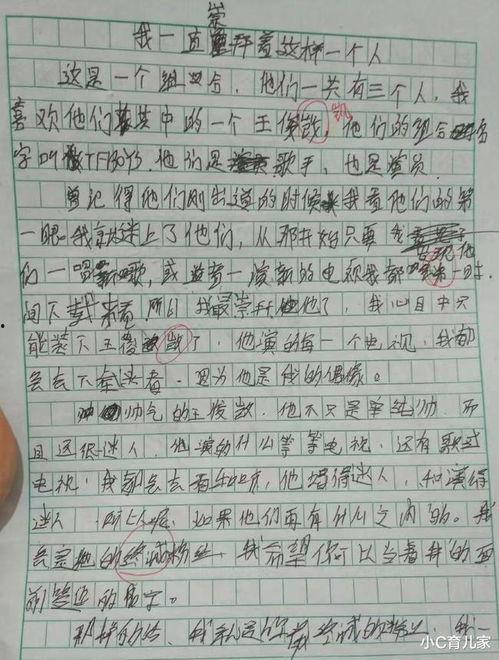 我一直崇拜着这样一个人
这是一个组合，他们一共有三个人，我
喜欢他们其中的一个王俊凯，他们的组合名
字叫TFBOYS，他们是歌手，也是演员。
记得他们刚出道的时候我看他们的第
一眼我就迷上了他们，从那开始只要我发现他
们一唱新歌，或者一演新的电视我都第一时
间下载来看，所以我最崇拜他了，我心目中只
能装下王俊了，他演的每一个电视，我都
会去下载来看，因为他是我的偶像。
帅气的王俊，他不只是单纯帅，而
且还很迷人，他演的什么等等电视，还有歌或
电视，我都会去看和听，他唱得迷人，和演得
迷人，所以呢，如果他们再有什么之内的。我
会是他的忠诚粉丝，我希望你可以当着我的面
前签上的名字。
那样的话，我就是你忠诚的粉丝，我一
小C育儿家